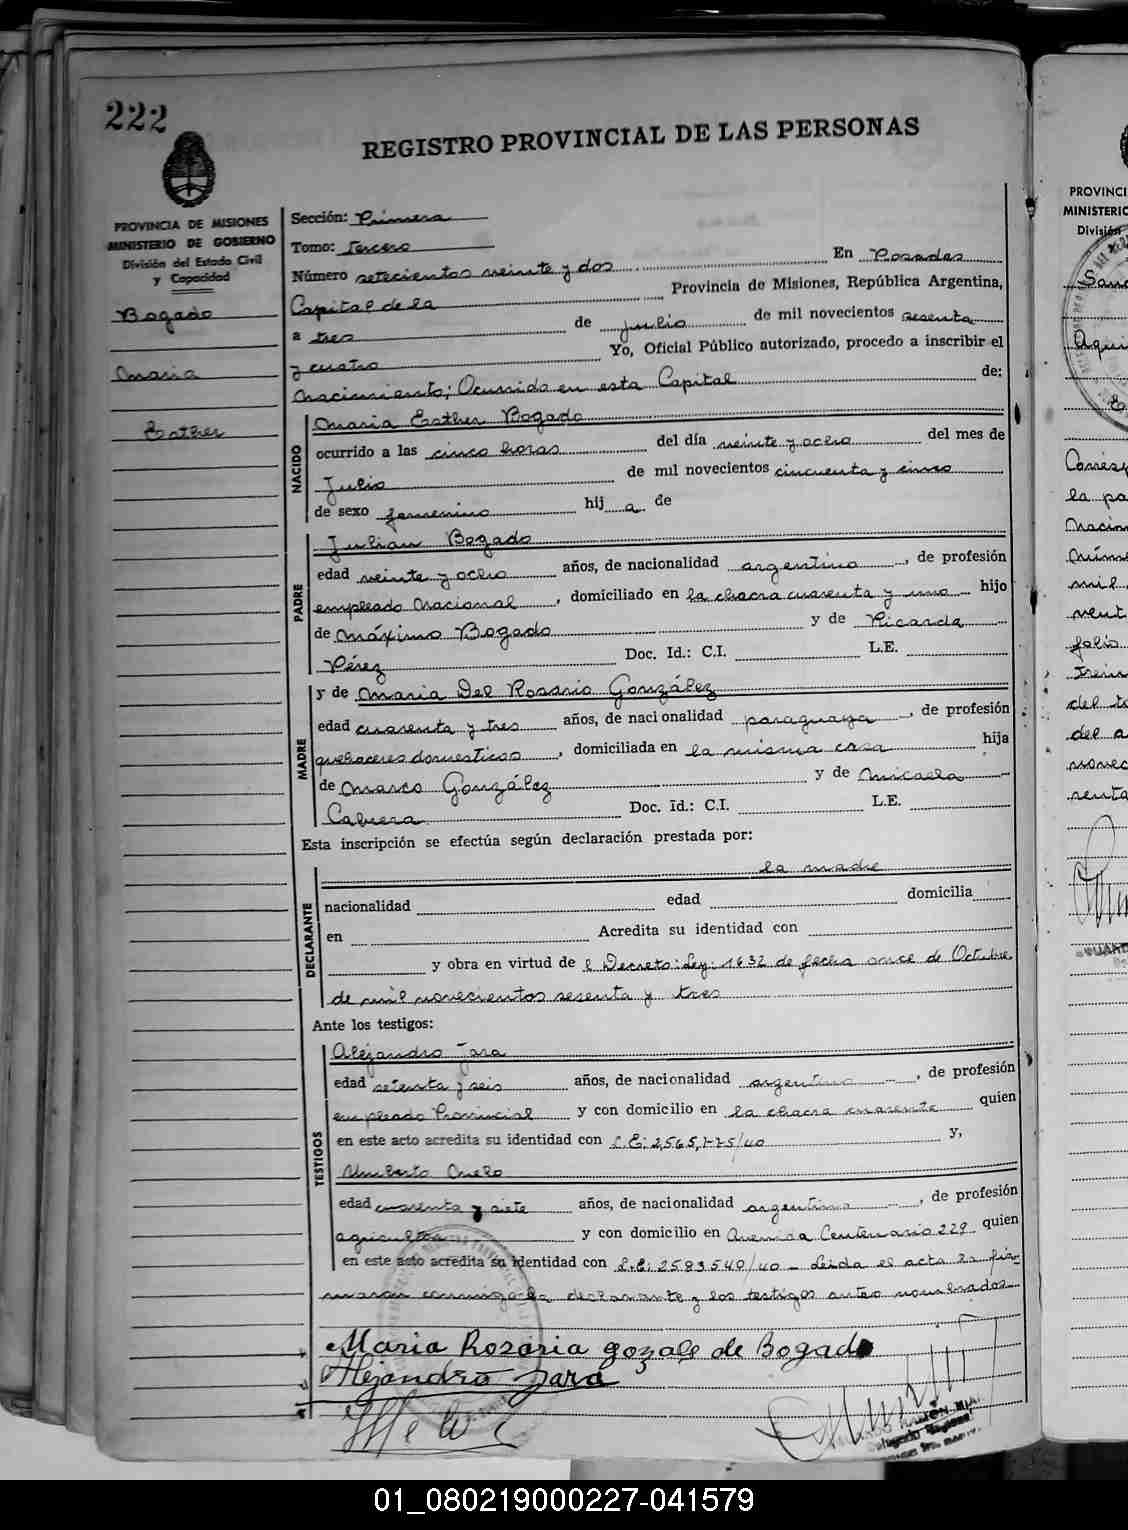 222
REGISTRO PROVINCIAL DE LAS PERSONAS
PROVINCIA DE MISIONES
MINISTERIO DE GOBIERNO
División del Estado Civil
y Capacidad
Bogado
Maria
Esther
Sección: Primera
Tomo: Tercero
Número setecientos veinte y dos En Posadas
Capital de la Provincia de Misiones, República Argentina,
a tres de Julio de mil novecientos sesenta
y cuatro Yo, Oficial Público autorizado, procedo a inscribir el
Nacimiento; Ocurrido en esta Capital de:
NACIDO
Maria Esther Bogado
ocurrido a las cinco horas del día veinte y ocho del mes de
Julio de mil novecientos cincuenta y cinco
de sexo femenino hij a de
PADRE
Julian Bogado
edad veinte y ocho años, de nacionalidad argentino, de profesión
empleado Nacional, domiciliado en la chacra cuarenta y uno hijo
de Máximo Bogado y de Ricarda
Pérez Doc. Id.: C.I. L.E.
MADRE
y de Maria Del Rosario González
edad cuarenta y tres años, de nacionalidad paraguaya, de profesión
quehaceres domesticos, domiciliada en la misma casa hija
de Marco González y de Micaela
Cabrera Doc. Id.: C.I. L.E.
Esta inscripción se efectúa según declaración prestada por:
DECLARANTE
la madre
nacionalidad edad domicilia
en Acredita su identidad con
y obra en virtud de l Decreto: Ley: 1632 de fecha once de Octubre
de mil novecientos sesenta y tres
Ante los testigos:
TESTIGOS
Alejandro Jara
edad setenta y seis años, de nacionalidad argentino, de profesión
empleado Provincial y con domicilio en la chacra cuarenta quien
en este acto acredita su identidad con L.E: y,
Umberto
edad cuarenta y siete años, de nacionalidad argentino, de profesión
agricultor y con domicilio en Avenida Centenario 229 quien
en este acto acredita su identidad con L.E: 2583540/40 - Leida el acta la fir-
maran conmigo la declarante y los testigos antes nombrados
Maria Rosaria gozale de Bogado
Alejandro Jara
PROVINCI
MINISTERIO
División
01_080219000227-041579